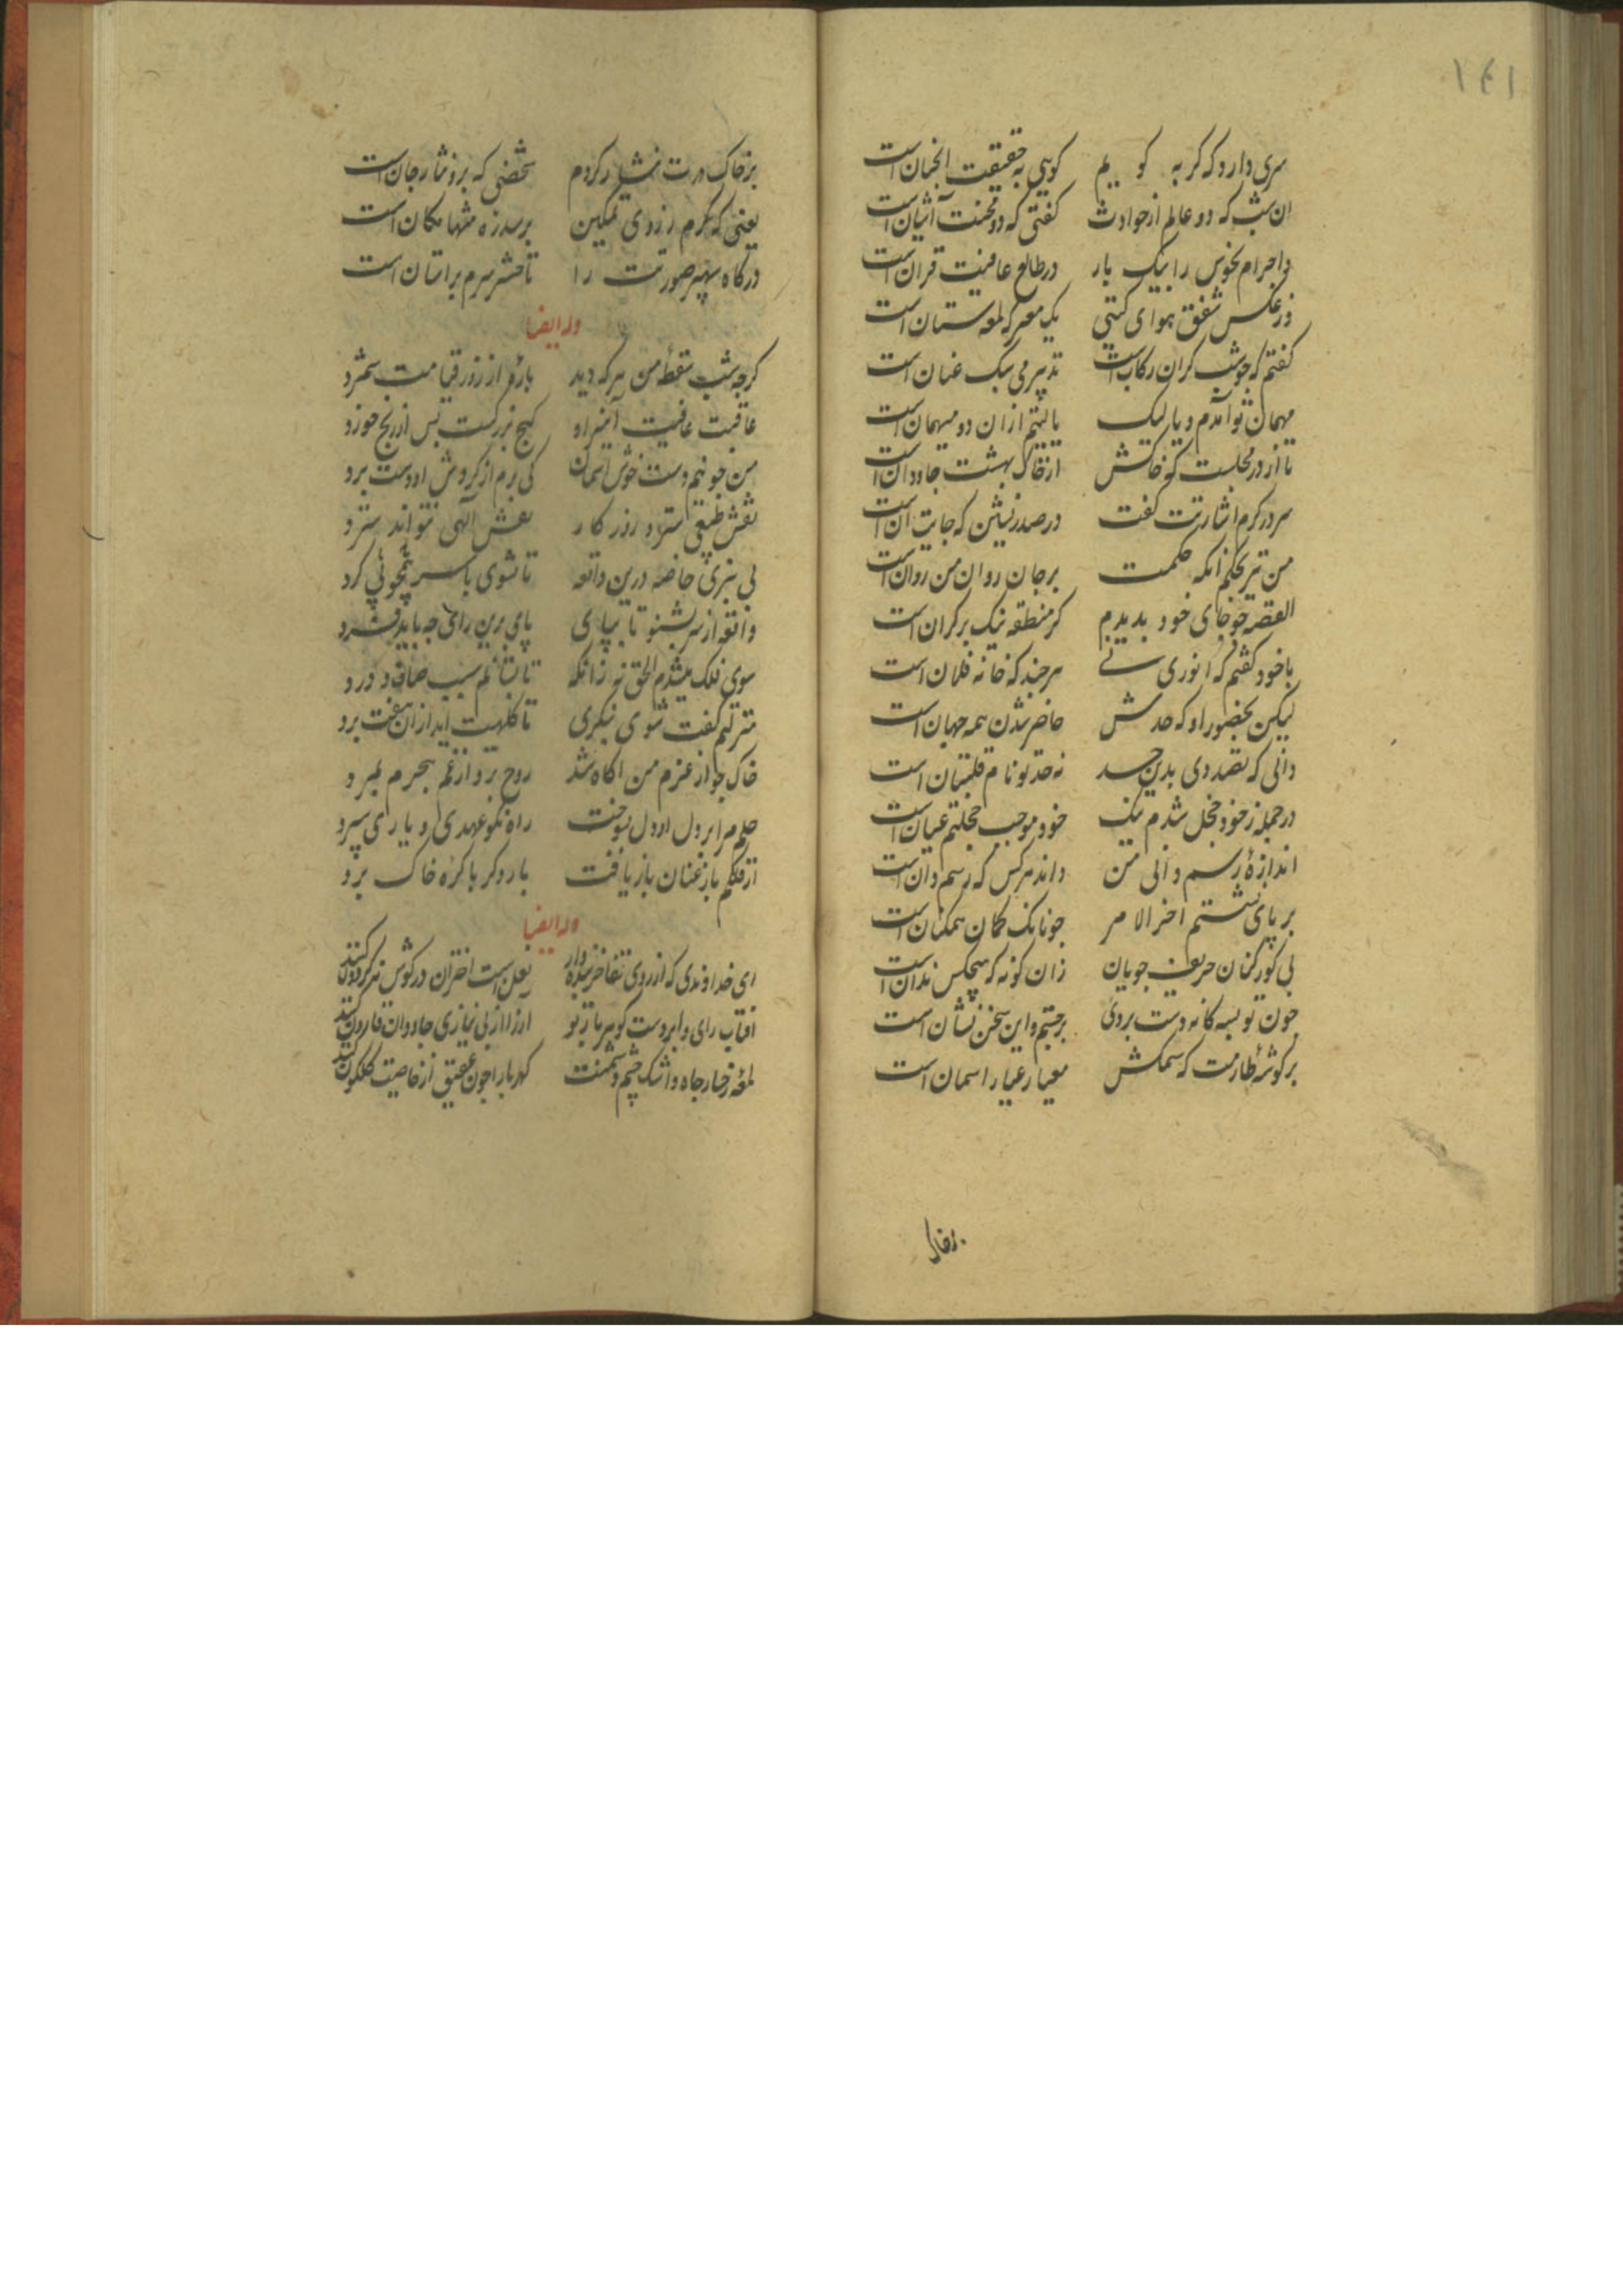 ۱۴۱
سری دارد که گر به گویم گویی به حقیقت انچنان است
ان شب که دو عالم از حوادث گفتی که دو محنت آشیان است
واجرام نحوس را بیک بار در طالع عافیت قران است
وز عکس شفق هوای گیتی یک معرکه لمعه سنان است
گفتم که چو شب گران رکاب است تدبیر می سبک عنان است
مهمان تو آمدم و یا لیک یا لیتم از ان دو میهمان است
تا از در مجلست که خاکش از خاک بهشت جاودان است
سر در کرم اشارتت گفت در صدر نشین که جایت ان است
من نیز بحکم انکه حکمت بر جان روان من روان است
القصه چو جای خود بدیدم کز منطقه نیک بر کران است
با خود گفتم که انوری نی هر چند که خانه فلان است
لیکن بحضور او که حدش حاضر شدن همه جهان است
دانی که تصدری بدین حد نه حد تو نام قلتبان است
در جمله ز خود خجل شدم نیک خود موجب خجلتم عیان است
اندازه رسم دانی من داند هر کس که رسم دان است
بر پای نشستم اخر الامر چونانک گمان همکنان است
بی کور کنان حریف جویان زان گونه که هیچکس ندان است
چون تو بسه گانه دست بردی برجستم و این سخن نشان است
بر گوشه طارمت که سمکش معیار عیار اسمان است
بر خاک
بر خاک درت نثار کردم شخصی که برو نثار جان است
یعنی که بگیرم ز روی تمکین
درگاه سپهر صورتت را تا حشر سرم بر استان است
وله ایضا
گرچه شب سقطه من هر که دید بازم از روز قیامت شمرد
عاقبت عافیت آمیز او گنج بزرگست پس از رنج خورد
من چو نیم دست خوش اسمان کی برم از گردش او دست برد
نقش طبیعی سترد روزگار نقش الهی نتواند سترد
بی خبری خاصه درین واقعه تا نشوی باسر پی گرد
واقعه از سر بشنو تا بپای پای برین رای چه باید فشرد
سوی فلک میشدم الحق نه زانکه تا بشناسم سبب صاف و درد
منزلتم گفت شوی بنگری تا کلهیت اید ازان هفت برد
خاک چو از عزم من آگاه شد روح برو از غم هجرم بمرد
حلم مرا بر دل او دل بسوخت راه نکو عهدی و یاری سپرد
از فلکم باز عنان باز یافت بار دگر با کره خاک برد
وله ایضا
ای خداوندی که از روی تفاخر بنده وار نعل است اختران در گوش نه گردون کنند
آفتاب رای و ابر دست گوهر بار تو ارز را از بی نیازی جاودان قارون کنند
لمعه رخسار جاه و اشک چشم دشمنت کهربا را چون عقیق از خاصیت گلگون کنند